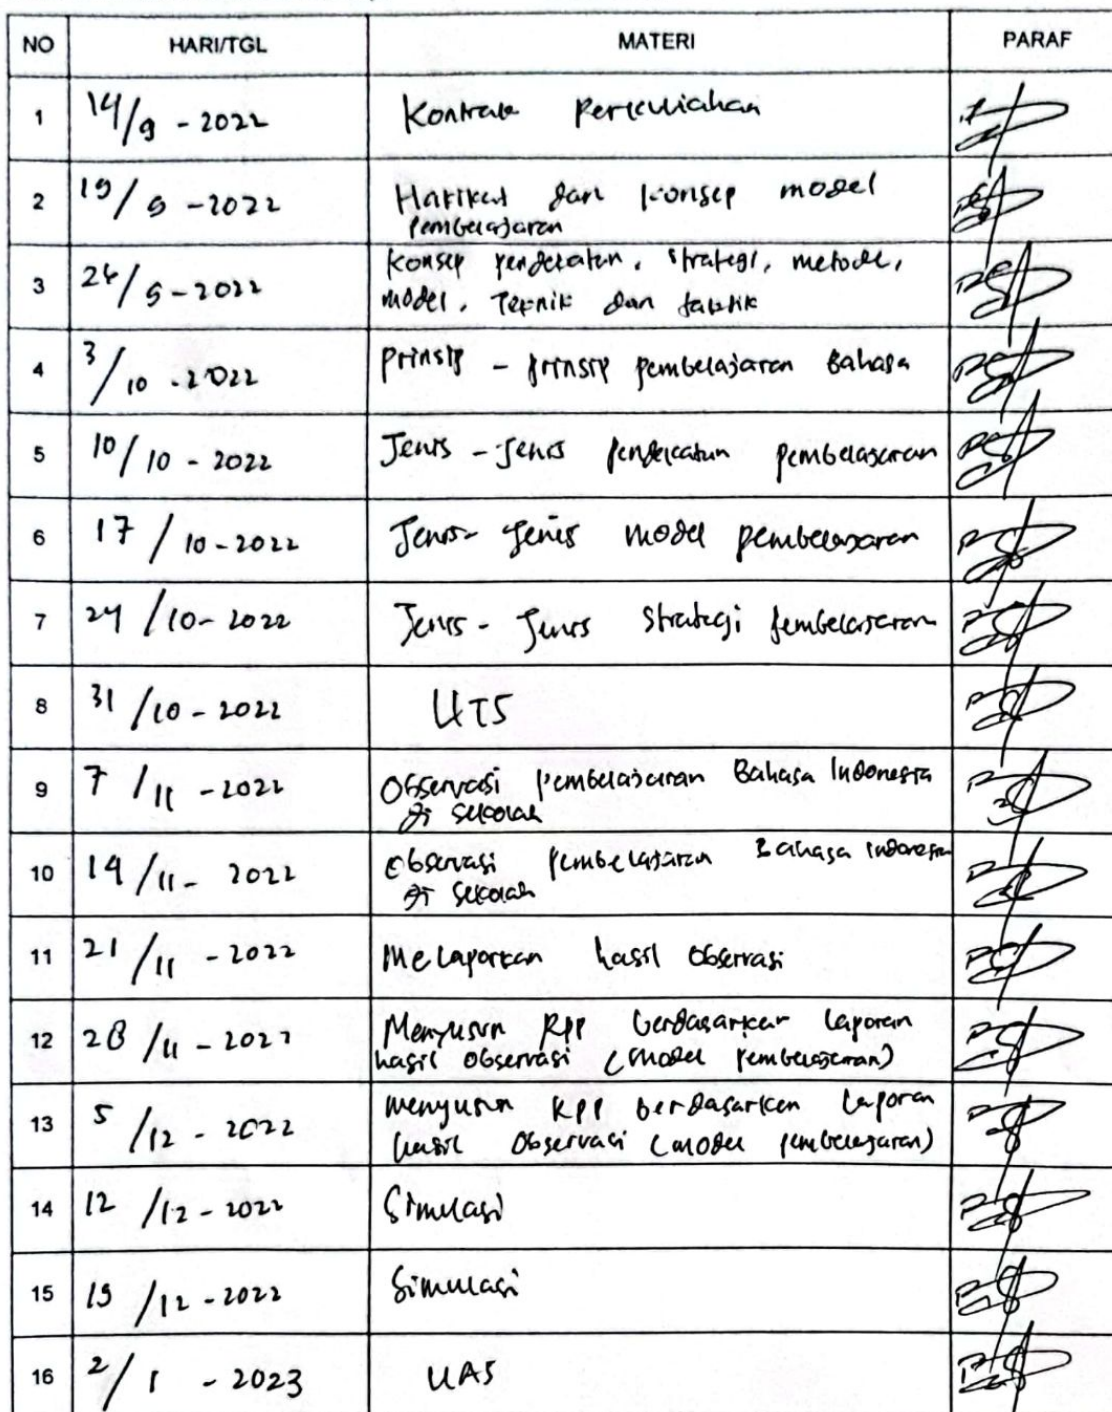 NO HARI/TGL MATERI PARAF
1 14/9 - 2022 Kontrak Perkuliahan
2 19/9 - 2022 Hakikat dan Konsep model
pembelajaran
3 24/9 - 2022 Konsep pendekatan, strategi, metode,
model, Teknik dan taktik
4 3/10 - 2022 Prinsip - prinsip pembelajaran Bahasa
5 10/10 - 2022 Jenis - Jenis pendekatan pembelajaran
6 17/10 - 2022 Jenis - Jenis model pembelajaran
7 24/10 - 2022 Jenis - Jenis Strategi pembelajaran
8 31/10 - 2022 UTS
9 7/11 - 2022 Observasi pembelajaran Bahasa Indonesia
di sekolah
10 14/11 - 2022 Observasi pembelajaran Bahasa Indonesia
di sekolah
11 21/11 - 2022 Melaporkan hasil Observasi
12 28/11 - 2022 Menyusun RPP berdasarkan laporan
hasil observasi (model pembelajaran)
13 5/12 - 2022 Menyusun RPP berdasarkan laporan
hasil observasi (model pembelajaran)
14 12/12 - 2022 Simulasi
15 19/12 - 2022 Simulasi
16 2/1 - 2023 UAS